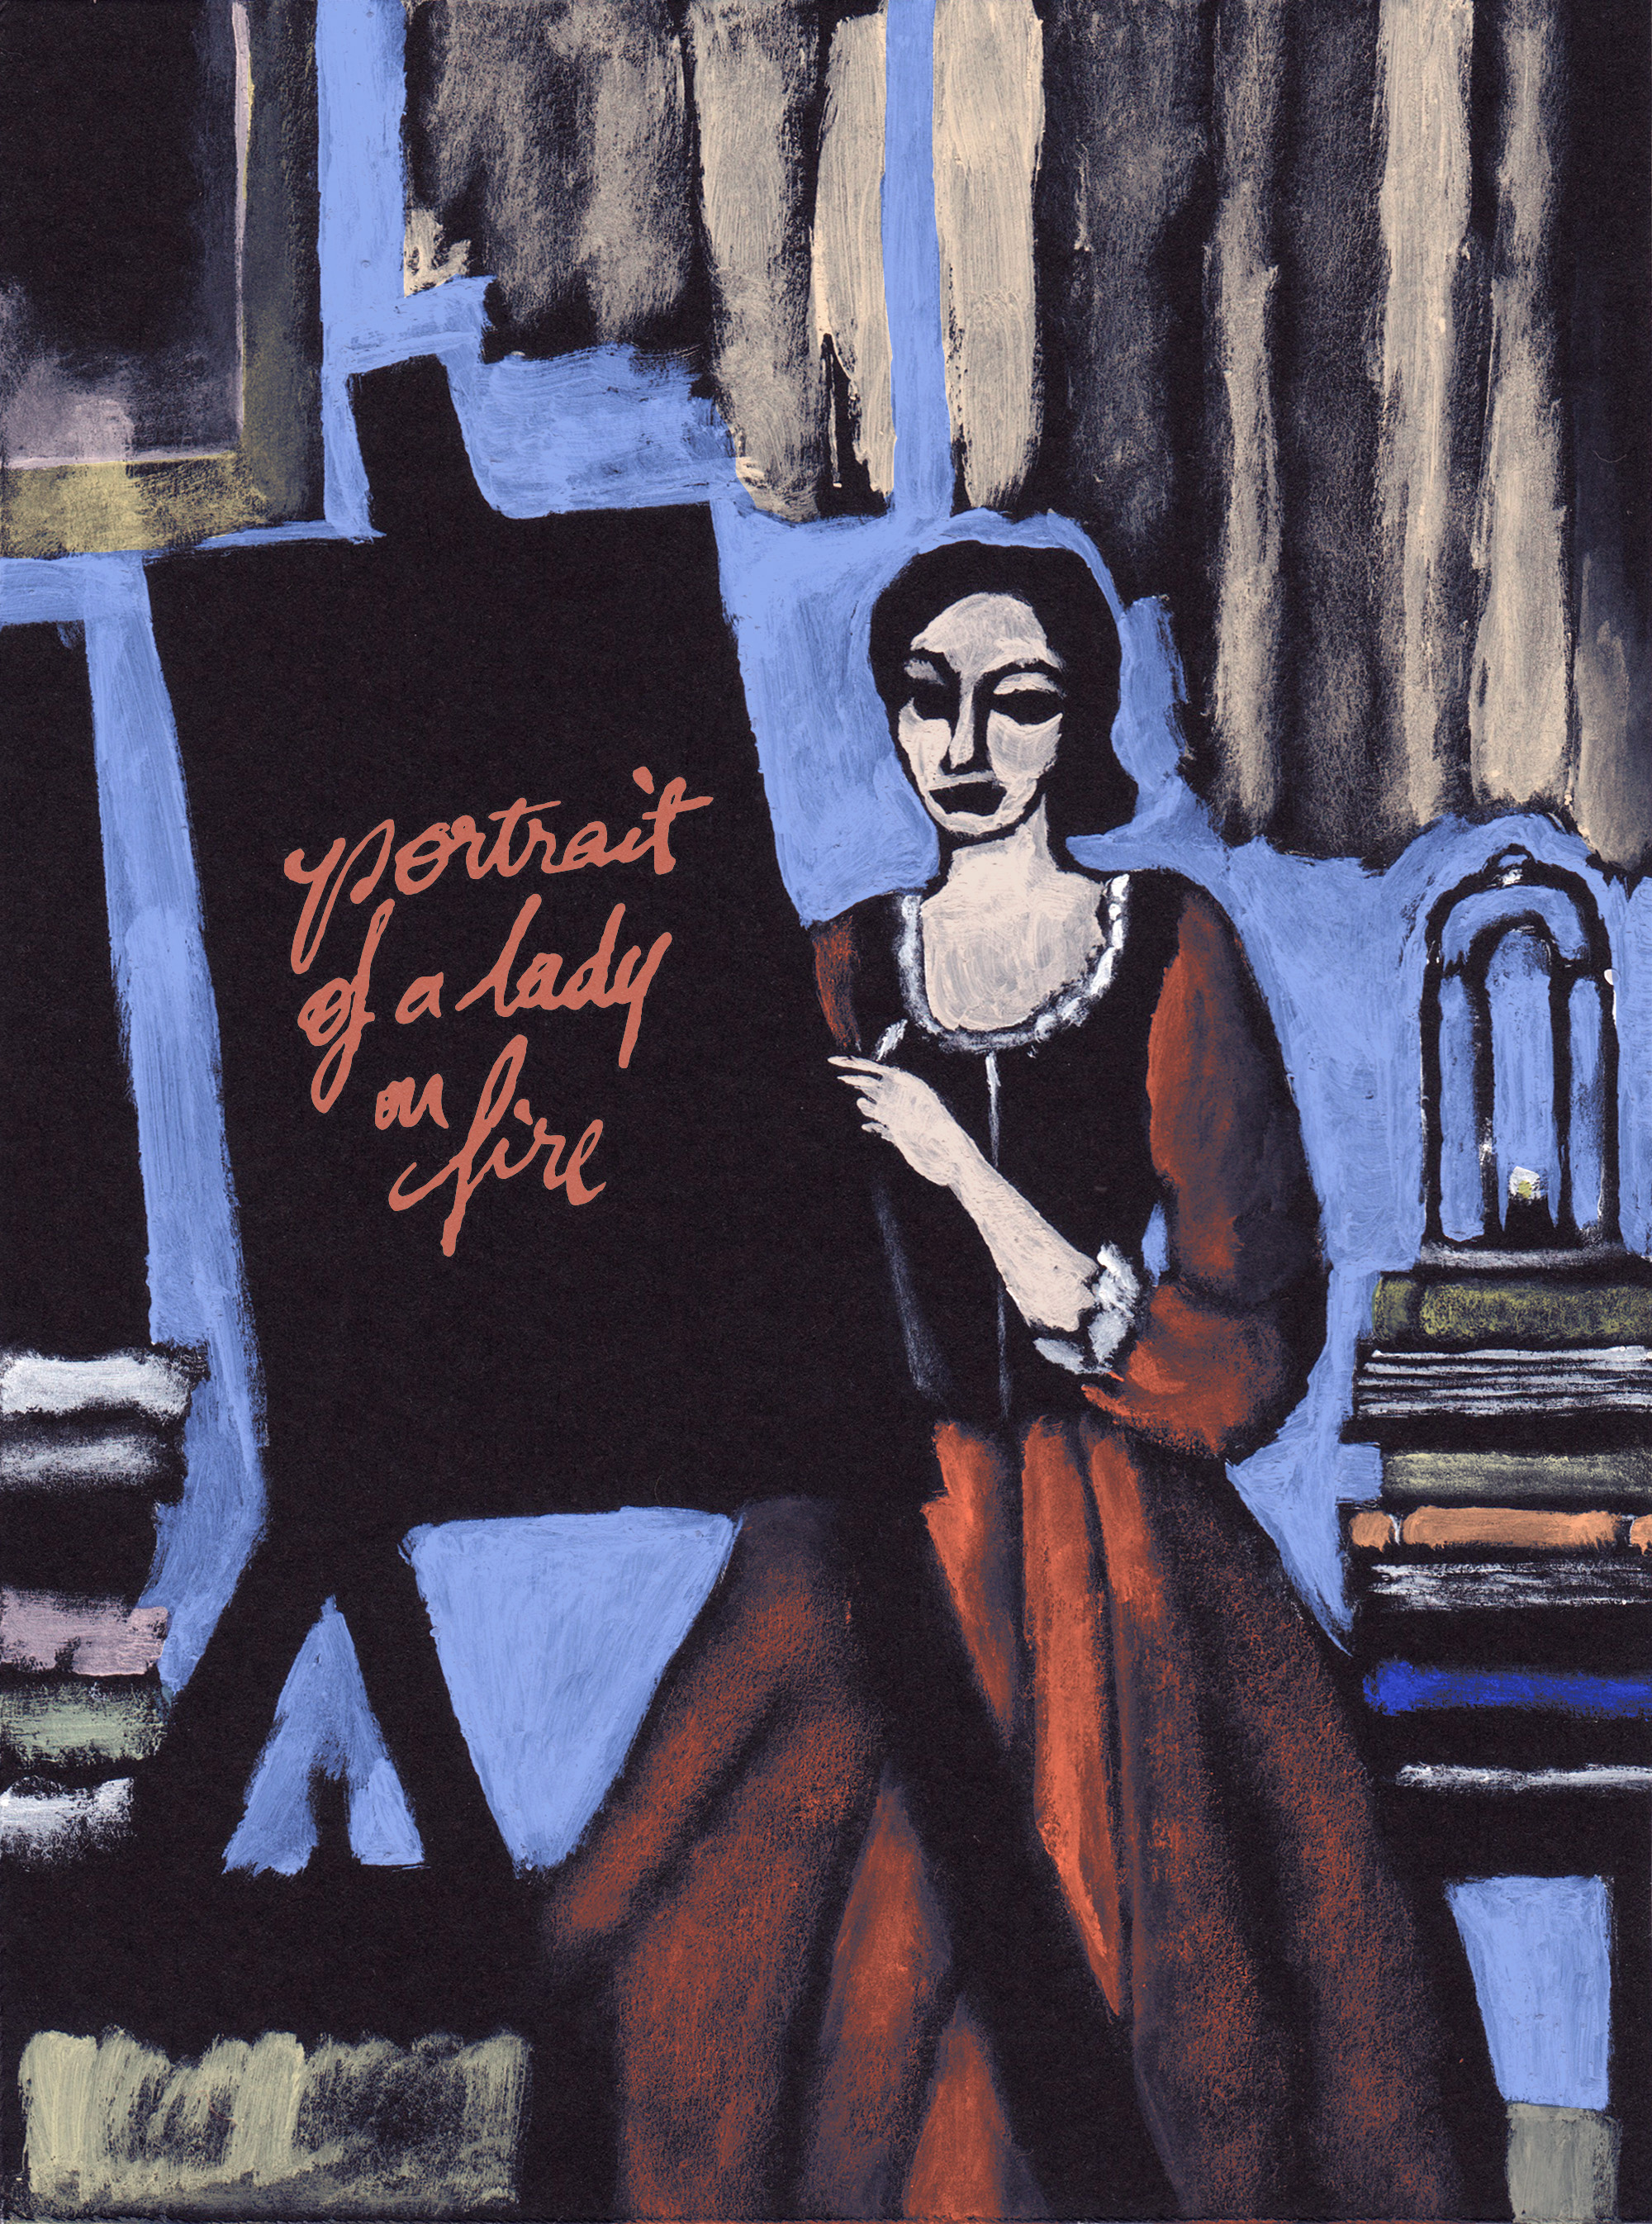 portrait
of a lady
on
fire